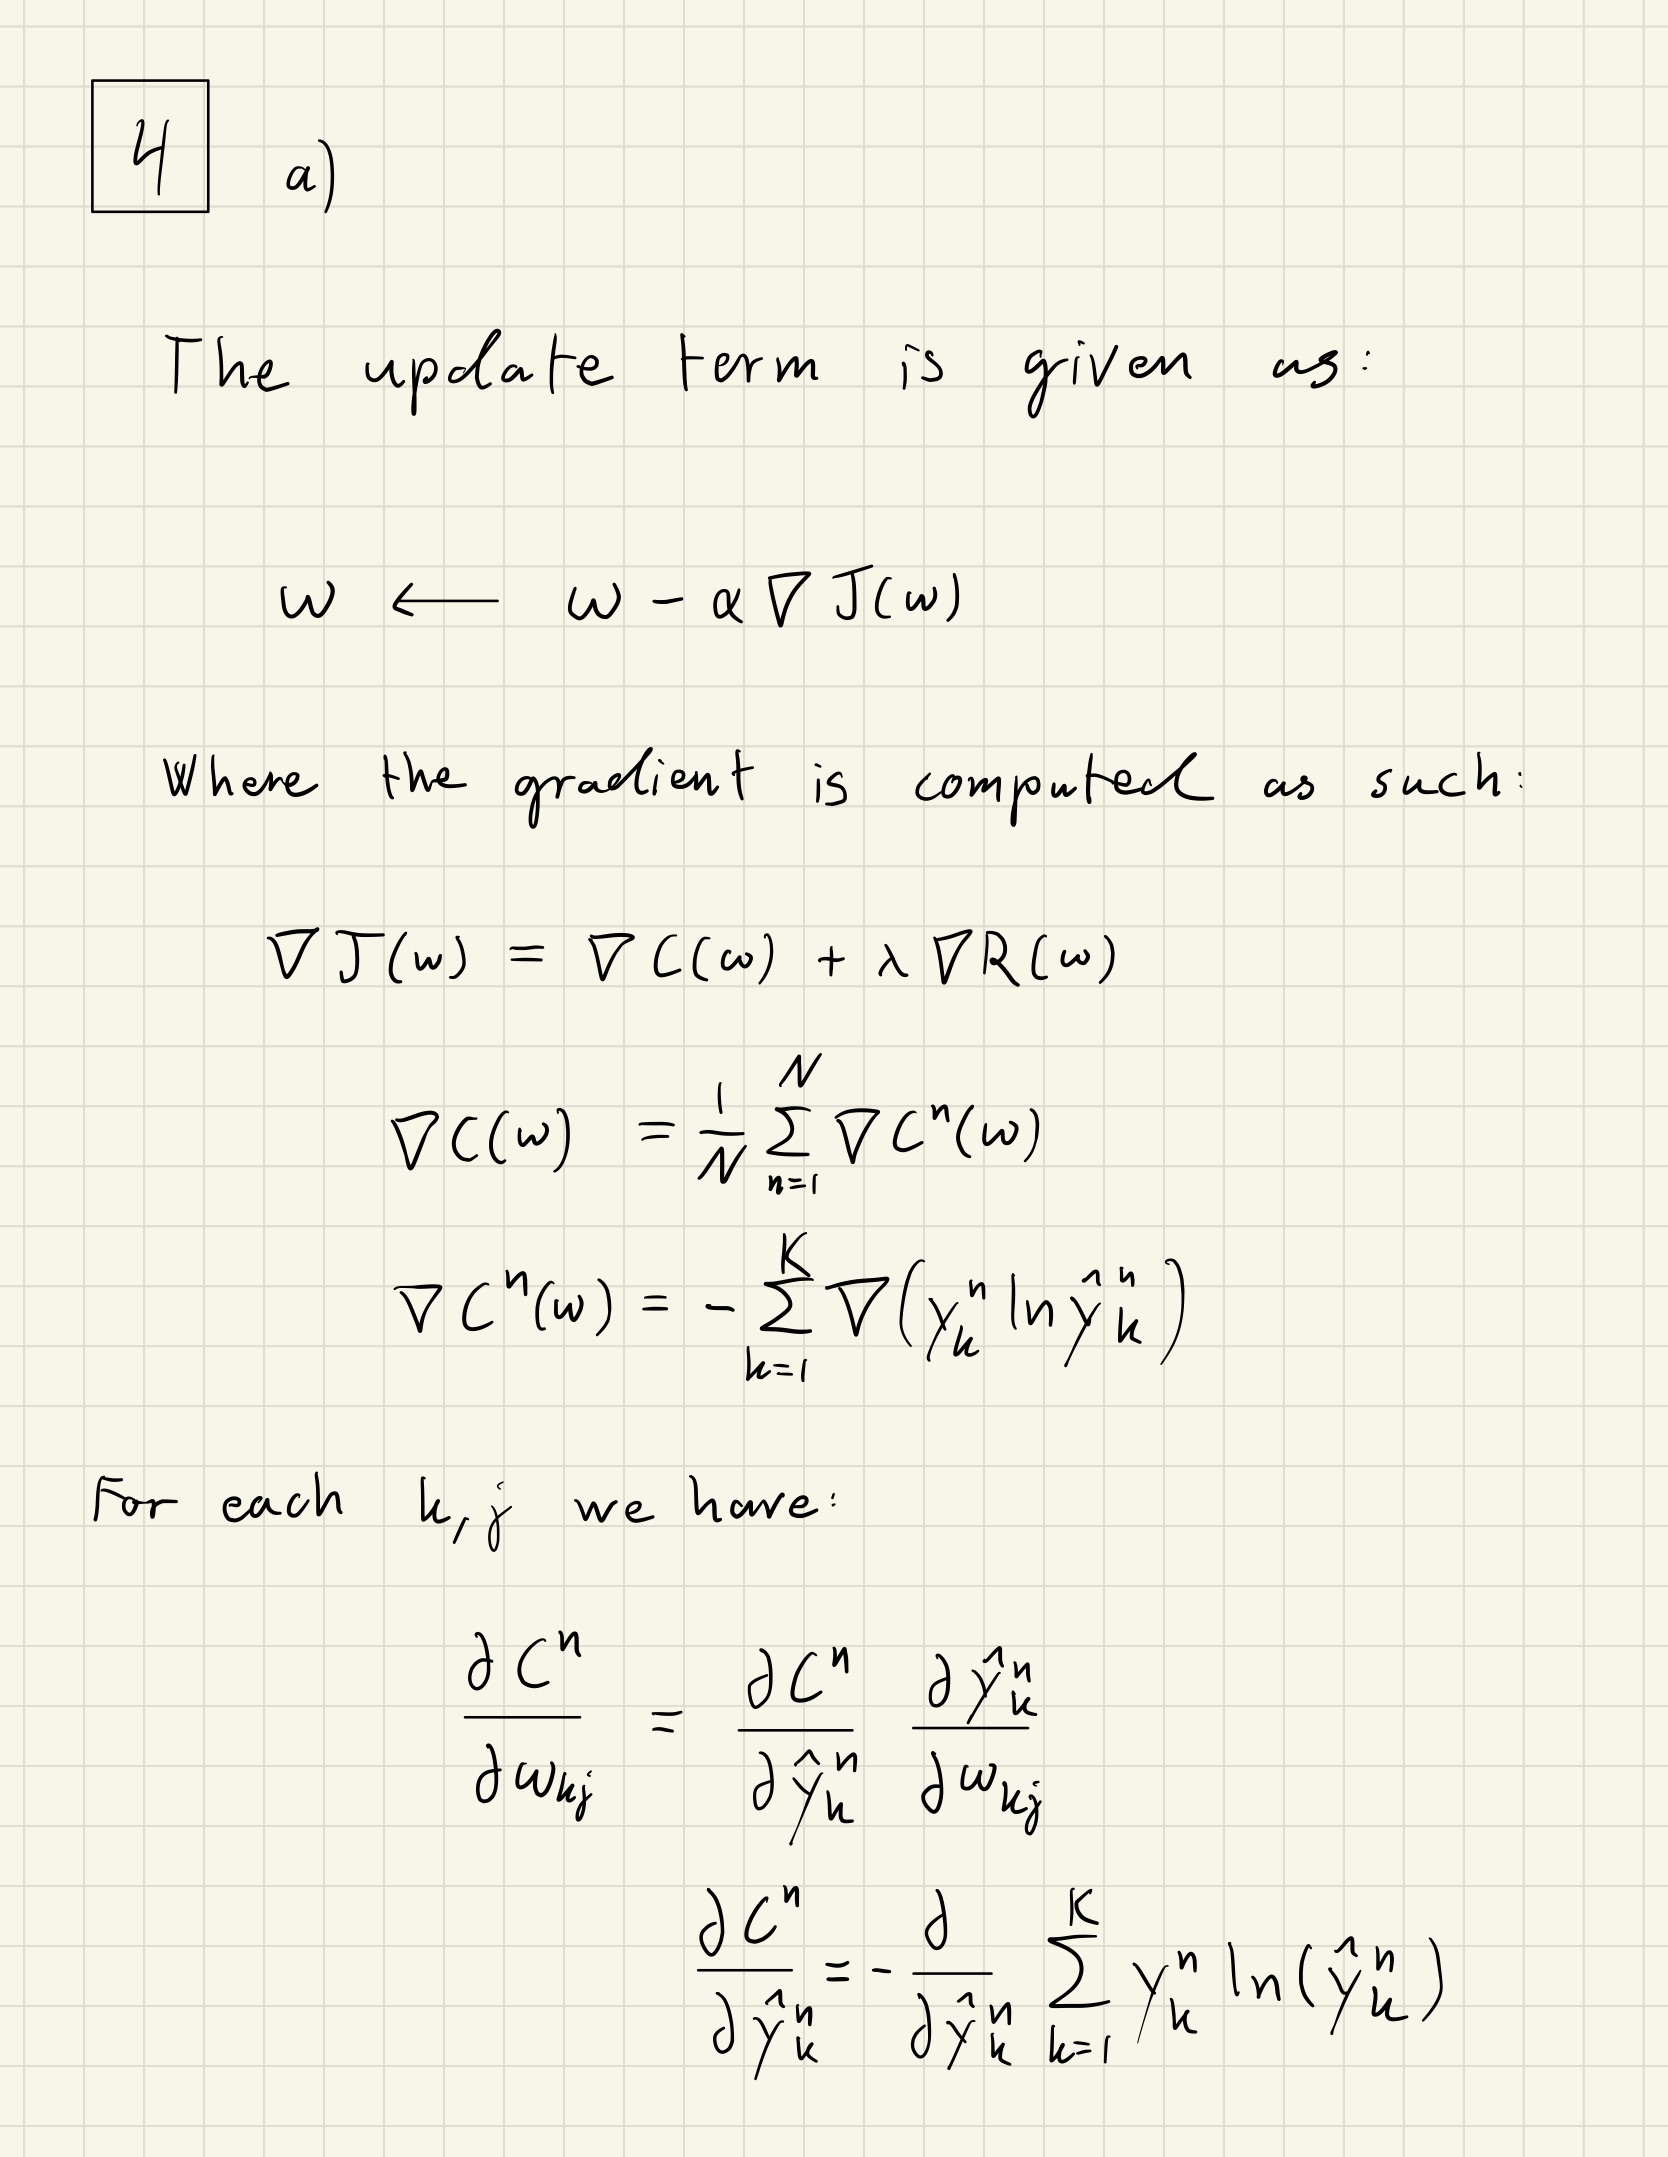 4 a)
The update term is given as:
w ← w - α ∇ J(w)
Where the gradient is computed as such:
∇ J(w) = ∇ C(w) + λ ∇ R(w)
∇ C(w) = \frac{1}{N} \sum_{n=1}^{N} ∇ C^n(w)
∇ C^n(w) = - \sum_{k=1}^{K} ∇ (y_k^n ln ŷ_k^n)
For each k, j we have:
\frac{∂ C^n}{∂ w_{kj}} = \frac{∂ C^n}{∂ ŷ_k^n} \frac{∂ ŷ_k^n}{∂ w_{kj}}
\frac{∂ C^n}{∂ ŷ_k^n} = - \frac{∂}{∂ ŷ_k^n} \sum_{k=1}^{K} y_k^n ln(ŷ_k^n)